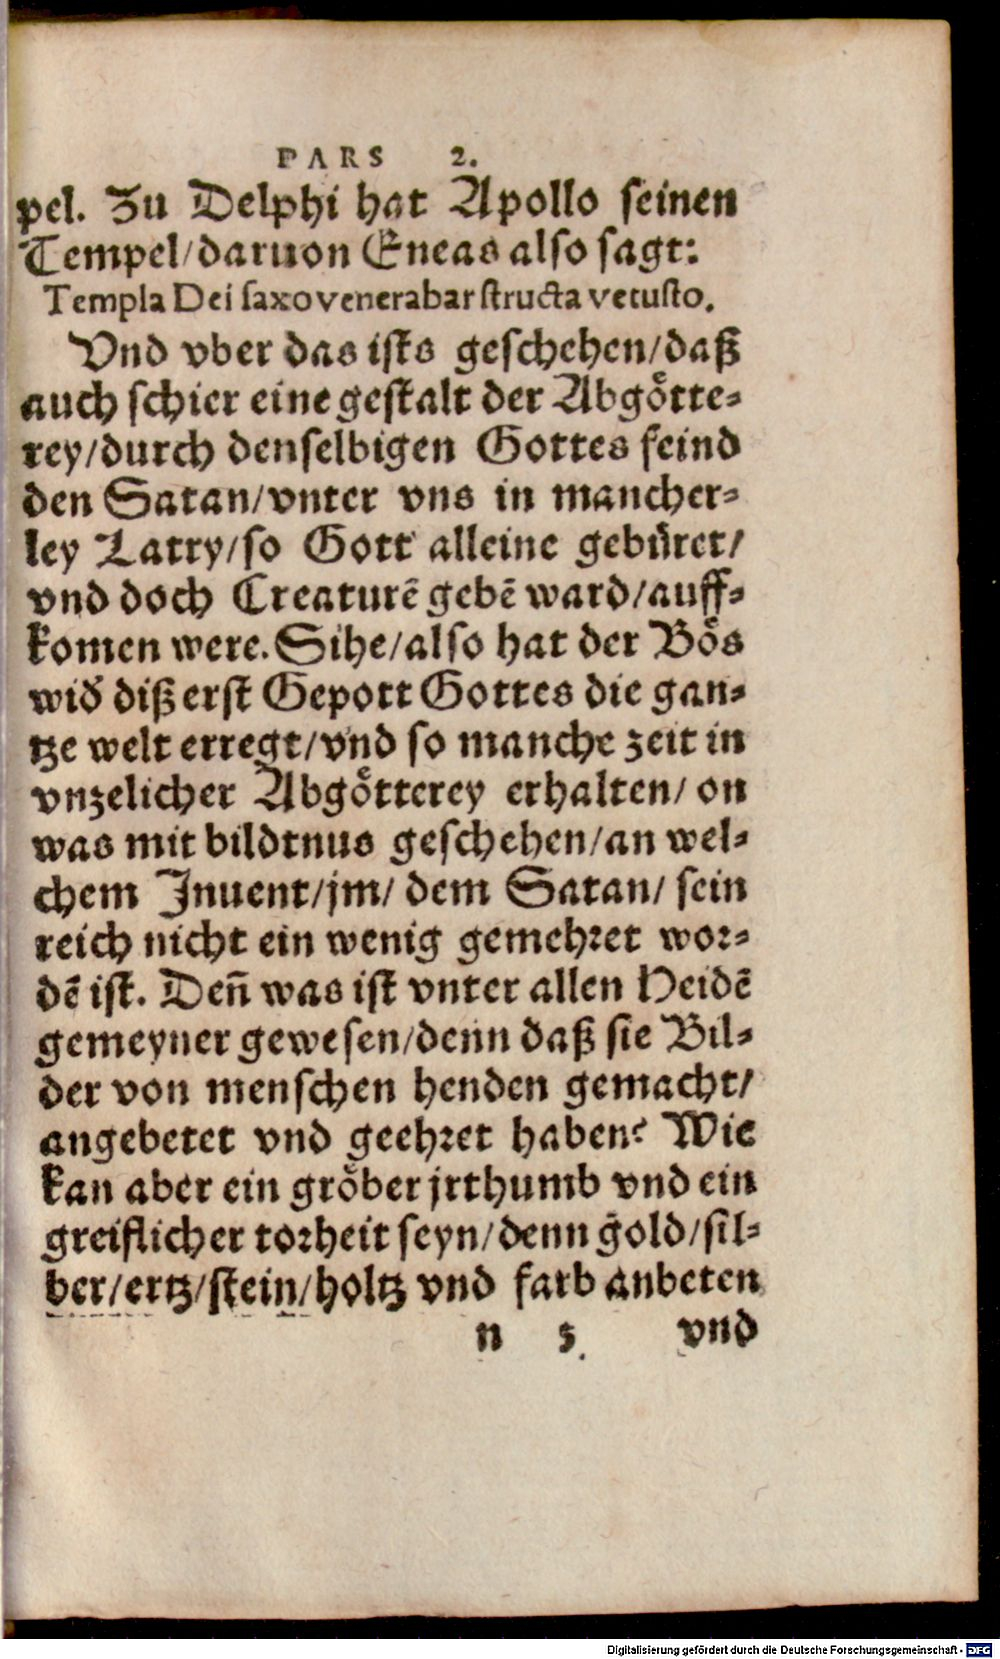 PARS 2.
pel. Zu Delphi hat Apollo seinen
Tempel/daruon Eneas also sagt:
Templa Dei saxo venerabar structa vetusto.
Vnd vber das ists geschehen/daß
auch schier eine gestalt der Abgötte-
rey/durch denselbigen Gottes feind
den Satan/vnter vns in mancher-
ley Latry/so Gott alleine gebüret/
vnd doch Creaturē gebē ward/auff-
komen were. Sihe/also hat der Bös
wid̄ diß erst Gepott Gottes die gan-
tze welt erregt/vnd so manche zeit in
vnzelicher Abgötterey erhalten/ on
was mit bildtnus geschehen/an wel-
chem Inuent/jm/ dem Satan/ sein
reich nicht ein wenig gemehret wor-
dē ist. Deñ was ist vnter allen Heidē
gemeyner gewesen/denn daß sie Bil-
der von menschen henden gemacht/
angebetet vnd geehret haben? Wie
kan aber ein gröber jrthumb vnd ein
greiflicher torheit seyn/denn gold/sil-
ber/ertz/stein/holtz vnd farb anbeten
n 5 vnd
Digitalisierung gefördert durch die Deutsche Forschungsgemeinschaft - DFG